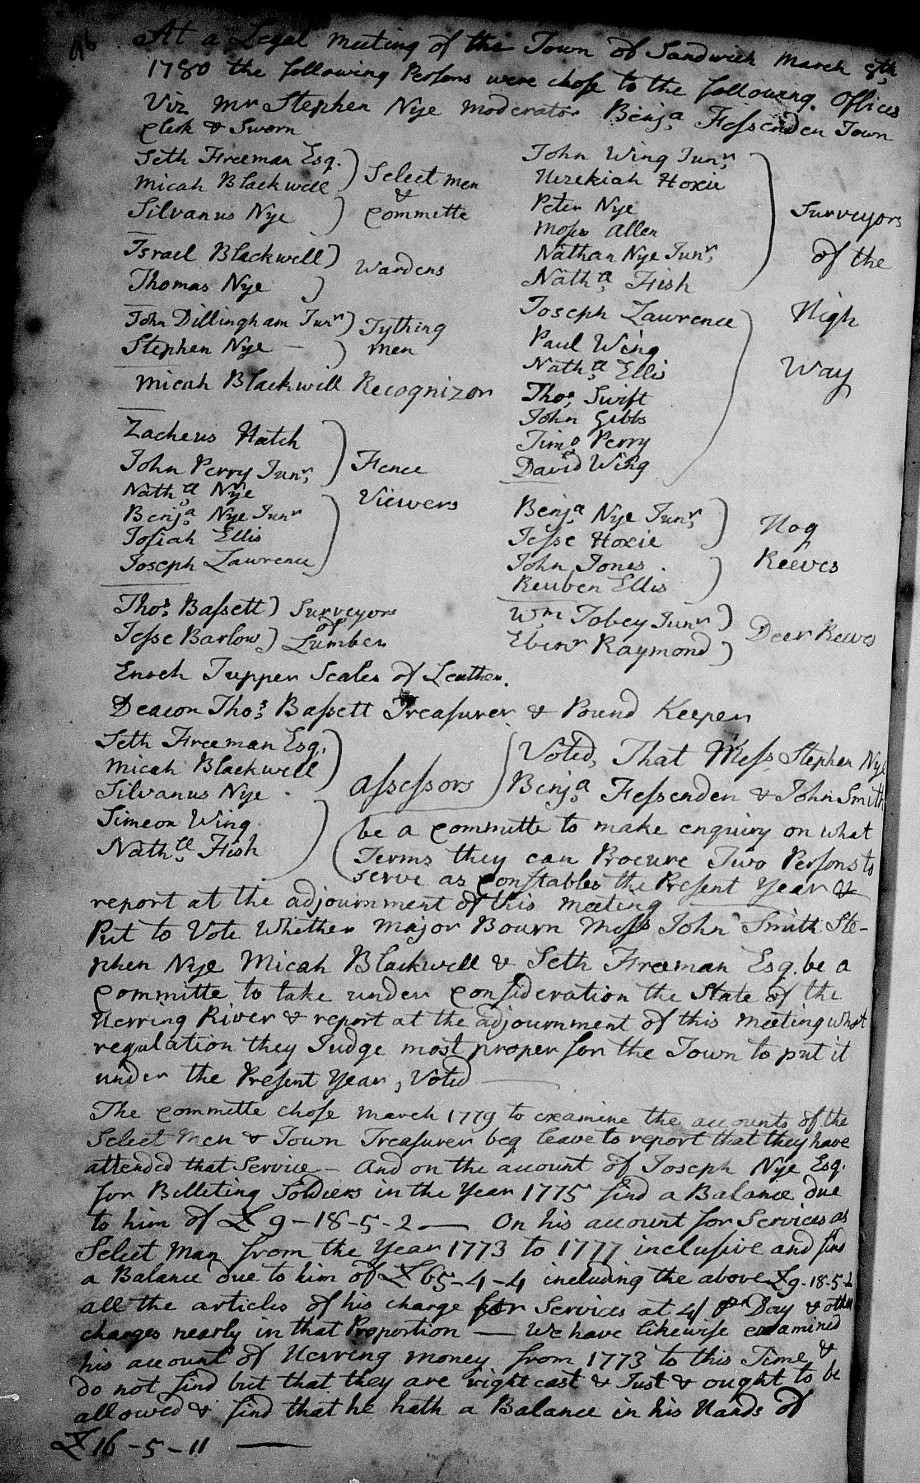 98
At a Legal meeting of the Town of Sandwich March 8th
1780 the following Persons were chose to the following Offices
Viz Mr Stephen Nye moderator Benja Fessenden Town
Clerk & Sworn
Seth Freeman Esq.
Micah Blackwell
Silvanus Nye
Select men
&
Committe
Israel Blackwell
Thomas Nye
Wardens
John Dillingham Junr
Stephen Nye —
Tything
men
Micah Blackwell Recognizor
Zacheus Hatch
John Perry Junr
Nathll Nye
Benja Nye Junr
Josiah Ellis
Joseph Lawrence
Fence
Viewers
Thos Bassett
Jesse Barlow
Surveyors
of
Lumber
John Wing Junr
Hezekiah Hoxie
Peter Nye
Moses Allen
Nathan Nye Junr
Natha Fish
Joseph Lawrence
Paul Wing
Nathll Ellis
Thos Swift
John Gibbs
Timo Perry
David Wing
Surveyors
of the
High
Way
Benja Nye Junr
Jesse Hoxie
John Jones
Reuben Ellis
Hog
Reeves
Wm Tobey Junr
Ebenr Raymond
Deer Reeves
Enoch Tupper Sealer of Leather.
Deacon Thos Bassett Treasurer & Pound Keeper
Seth Freeman Esq.
Micah Blackwell
Silvanus Nye
Simeon Wing
Nathll Fish
assessors
Voted, That Mess Stephen Nye
Benja Fessenden & John Smith
be a Committe to make enquiry on what
Terms they can Procure Two Persons to
serve as Constables the Present Year &
report at the adjournment of this meeting
Put to Vote Whether Major Bourn Mess John Smith Ste-
phen Nye Micah Blackwell & Seth Freeman Esq. be a
Committe to take under Consideration the State of the
Herring River & report at the adjournment of this meeting what
regulation they Judge most proper for the Town to put it
under the Present Year, Voted —
The Committe chose March 1779 to examine the accounts of the
Select Men & Town Treasurer beg leave to report that they have
attended that Service — And on the account of Joseph Nye Esq.
for Billeting Soldiers in the Year 1775 find a Balance due
to him of £ 9-18-5-2 — On his account for Services as
Select Man from the Year 1773 to 1777 inclusive and find
a Balance due to him of £ 65-4-4 including the above £9-18-5-2
all the articles of his charge for Services at 4/ Pr Day & other
charges nearly in that Proportion — We have likewise examined
his account of Herring money from 1773 to this Time &
do not find but that they are right cast & Just & ought to be
allowed & find that he hath a Balance in his Hands of
£ 16-5-11 —